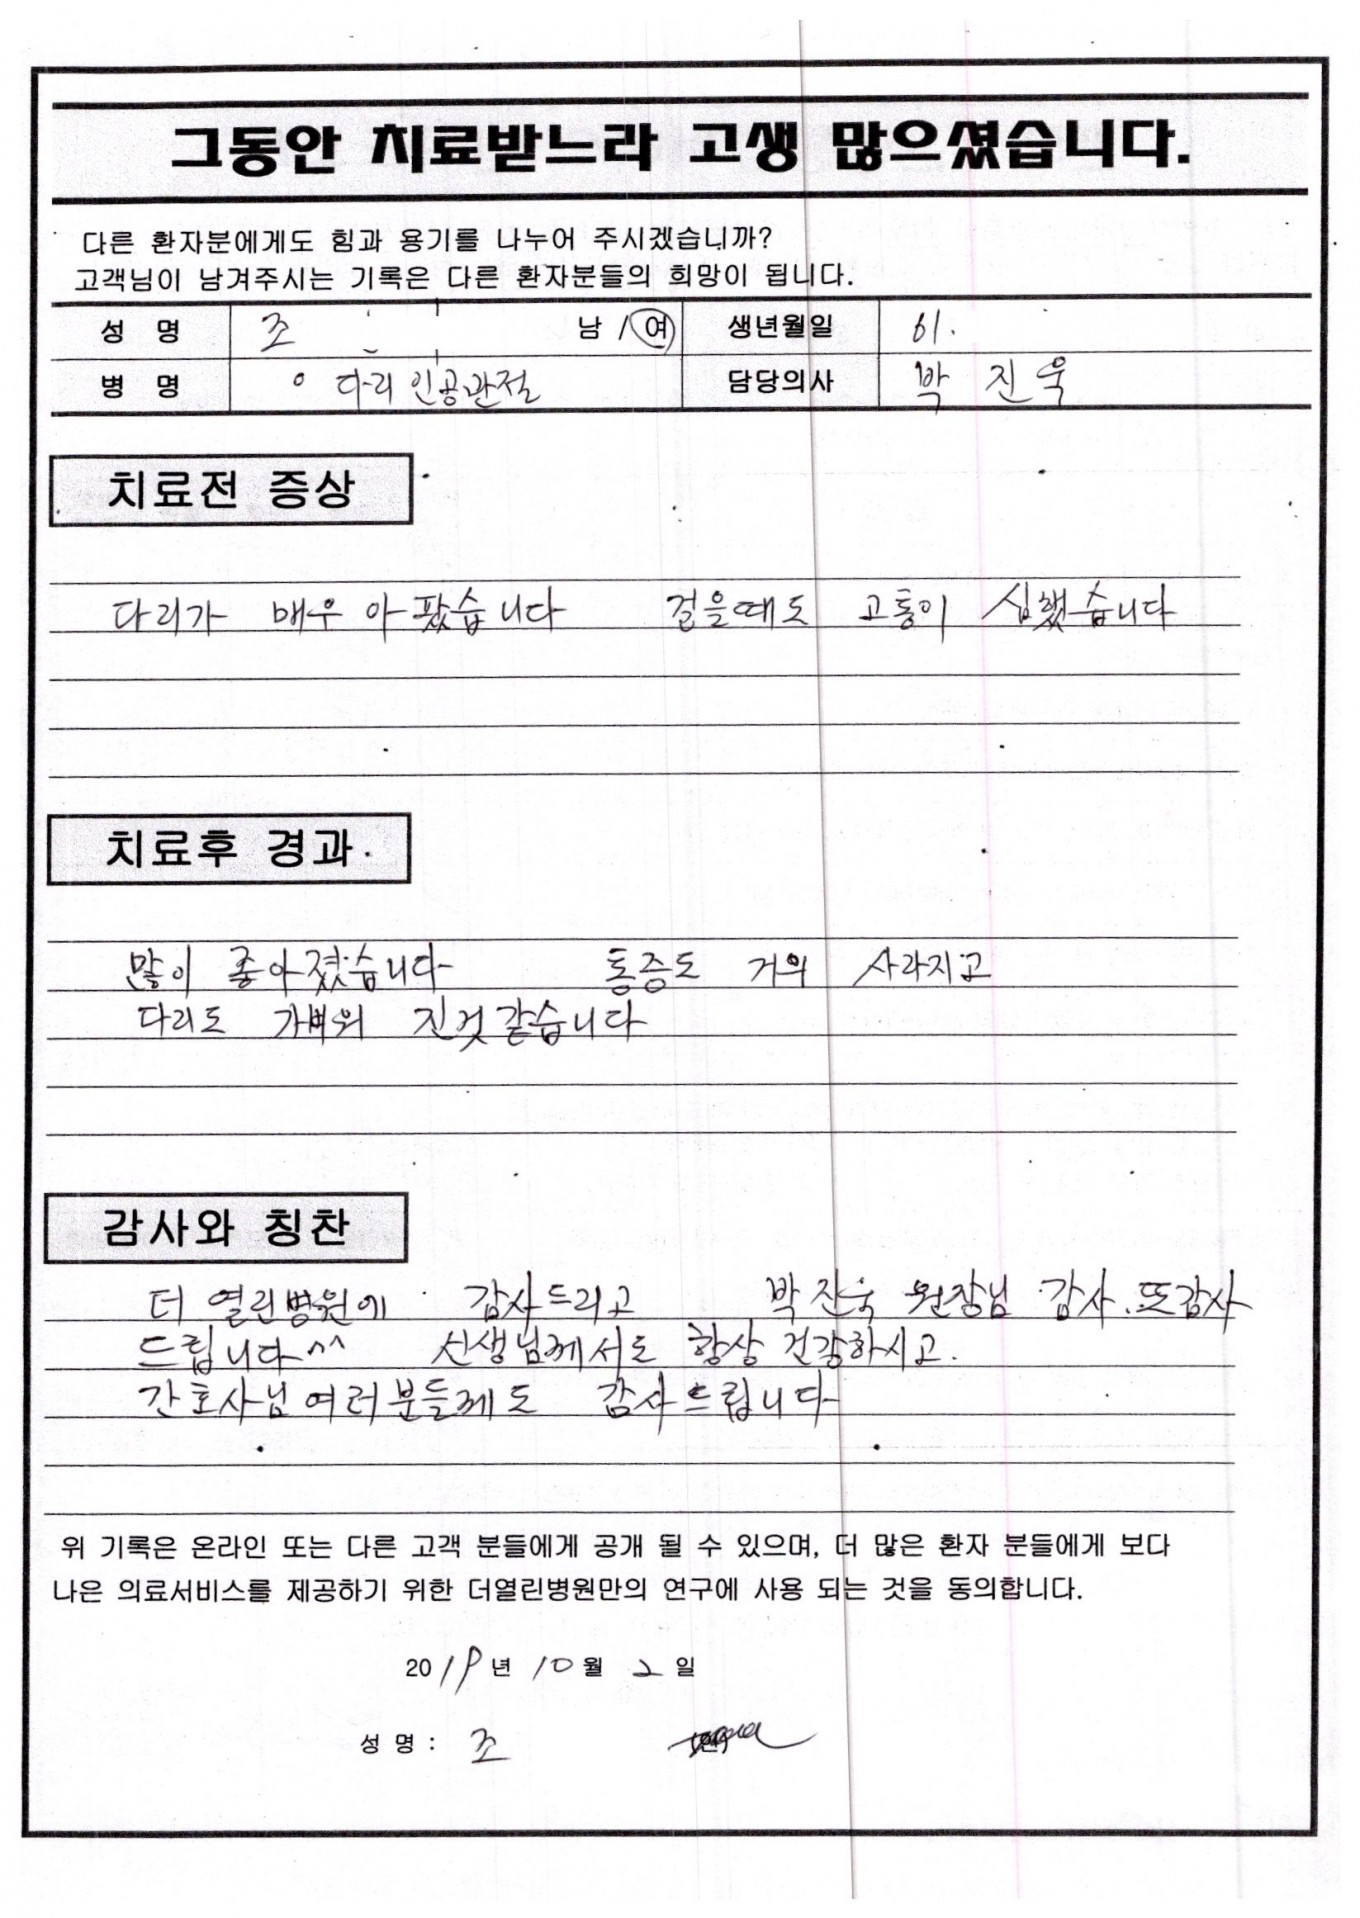 그동안 치료받느라 고생 많으셨습니다.
다른 환자분에게도 힘과 용기를 나누어 주시겠습니까?
고객님이 남겨주시는 기록은 다른 환자분들의 희망이 됩니다.
성 명 조 남 / 여 생년월일 61.
병 명 다리 인공관절 담당의사 박 진 욱
치료전 증상
다리가 매우 아팠습니다 걸을때도 고통이 심했습니다
치료후 경과
많이 좋아졌습니다 통증도 거의 사라지고
다리도 가벼워 진것 같습니다
감사와 칭찬
더 열린병원에 감사드리고 박진욱 원장님 감사. 또감사
드립니다^^ 선생님께서도 항상 건강하시고.
간호사님 여러분들께도 감사드립니다
위 기록은 온라인 또는 다른 고객 분들에게 공개 될 수 있으며, 더 많은 환자 분들에게 보다
나은 의료서비스를 제공하기 위한 더열린병원만의 연구에 사용 되는 것을 동의합니다.
2019년 10월 2일
성 명 : 조